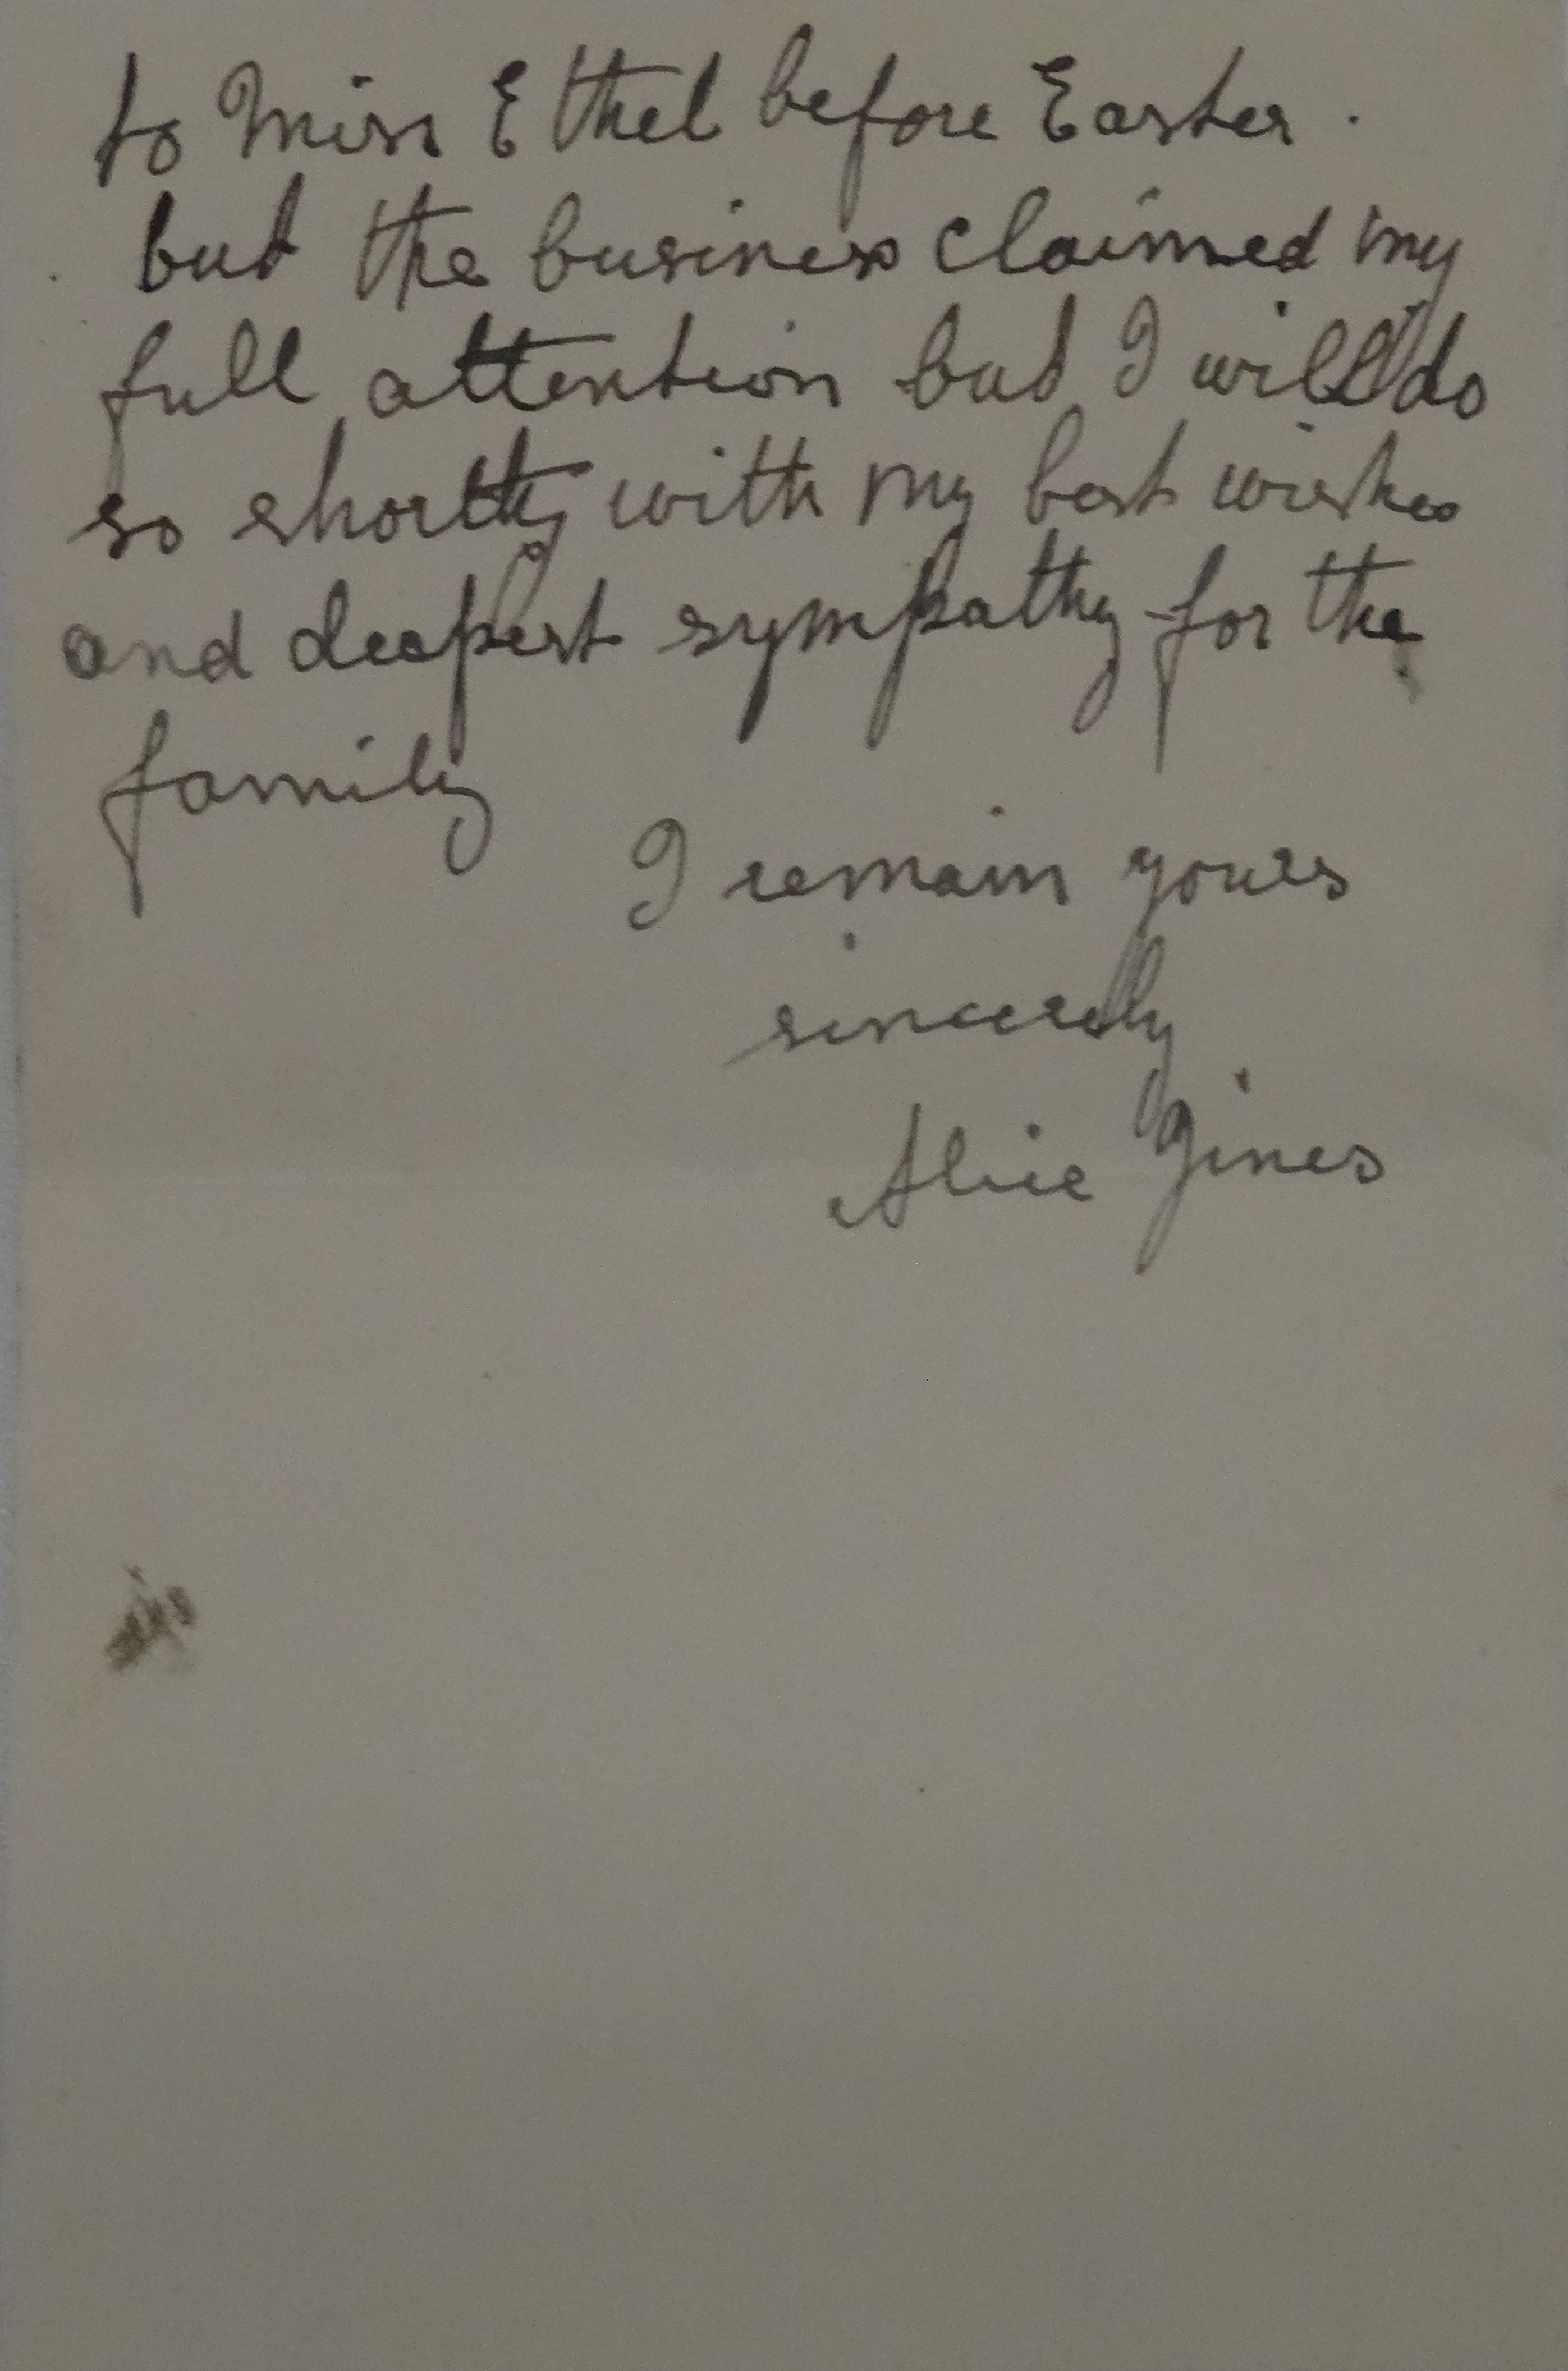 to Miss Ethel before Easter.
but the business claimed my
full attention but I will do
so shortly with my best wishes
and deepest sympathy for the
family
I remain yours
sincerely
Alice Gines